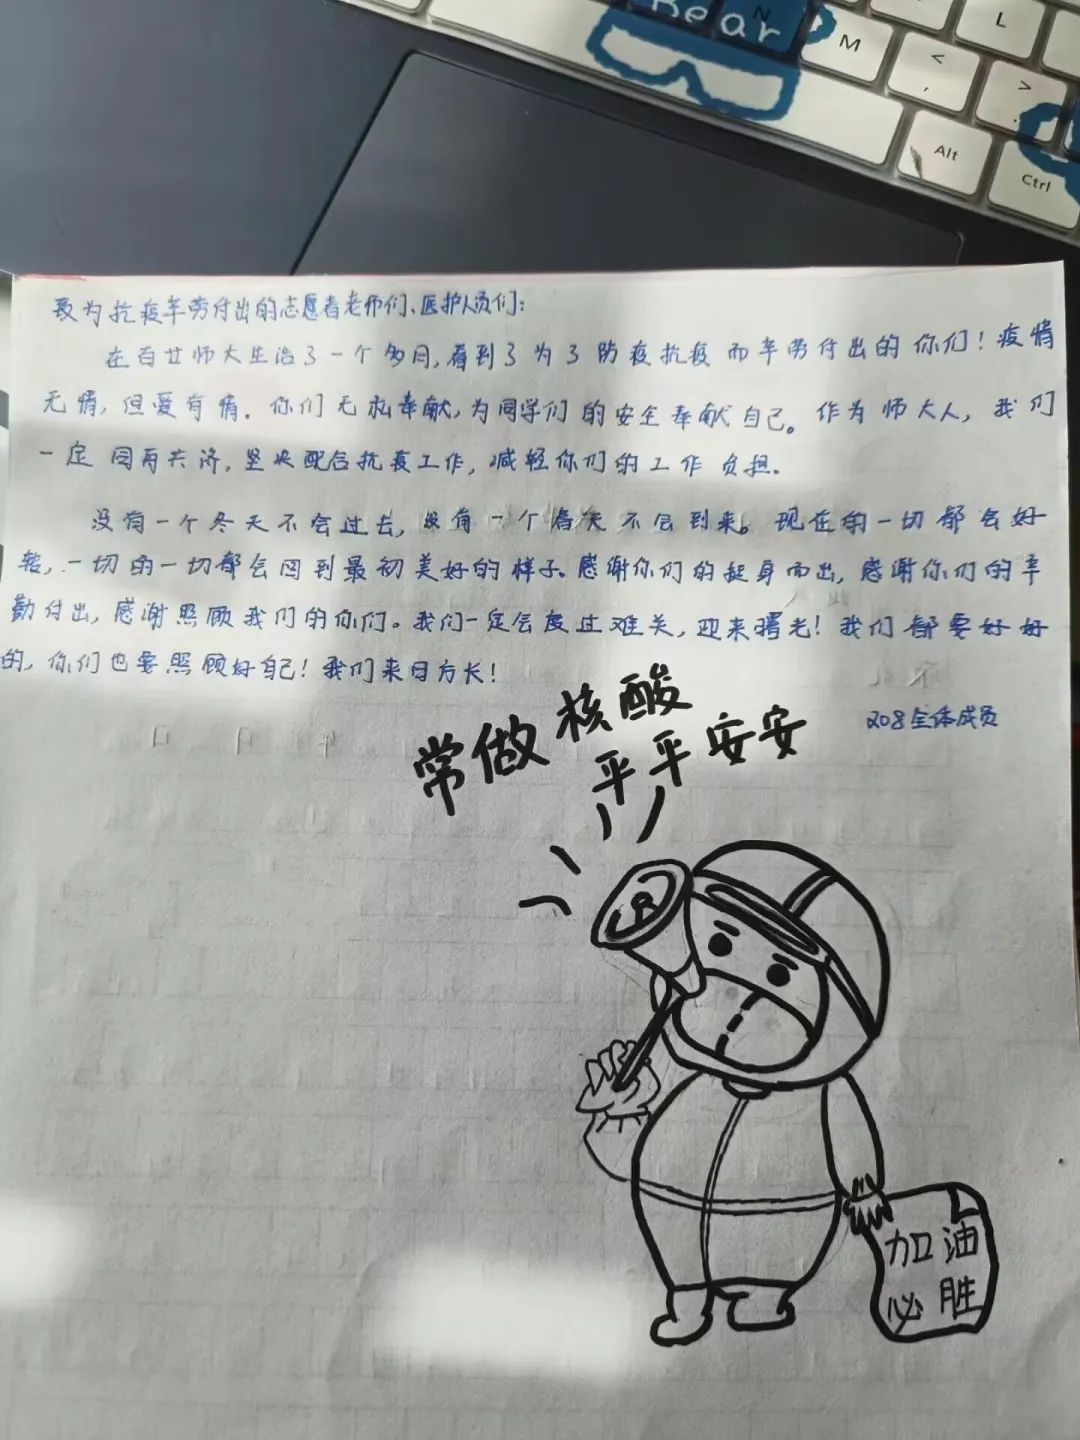 Bear
N
M
L
<
,
>
.
Alt
Ctrl
致为抗疫辛劳付出的志愿者老师们、医护人员们:
在百廿师大生活了一个多月,看到了为了防疫抗疫而辛劳付出的你们!疫情
无情,但爱有情.你们无私奉献,为同学们的安全奉献自己。作为师大人,我们
一定同舟共济,坚决配合抗疫工作,减轻你们的工作负担.
没有一个冬天不会过去,没有一个春天不会到来。现在的一切都会好
转,一切的一切都会回到最初美好的样子.感谢你们的挺身而出,感谢你们的辛
勤付出,感谢照顾我们的你们。我们一定会度过难关,迎来曙光!我们都要好好
的,你们也要照顾好自己!我们来日方长!
208全体成员
常做核酸
平平安安
加油
必胜